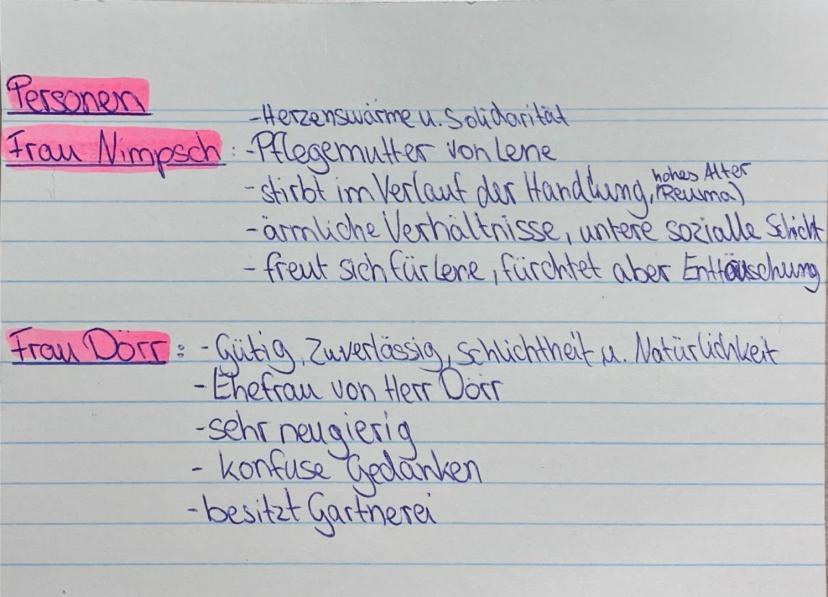 Personen
- Herzenswärme u. Solidarität
Frau Nimpsch : - Pflegemutter von Lene
- stirbt im Verlauf der Handlung, hohes Alter (Reusma)
- ärmliche Verhältnisse, untere sozialle Schicht
- freut sich für Lene, fürchtet aber Enttäuschung
Frau Dörr : - Gütig, Zuverlässig, Schlichtheit u. Natürlichkeit
- Ehefrau von Herr Dörr
- sehr neugierig
- konfuse Gedanken
- besitzt Gärtnerei